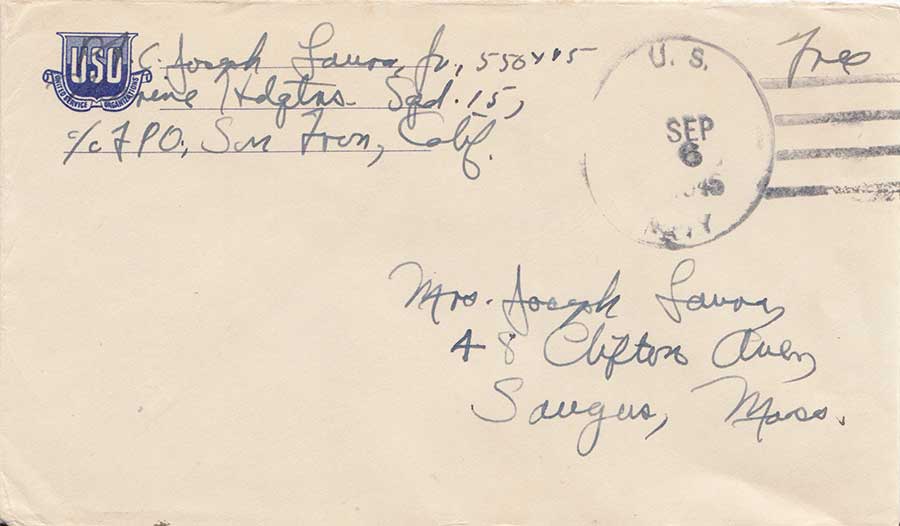 USO
UNITED SERVICE ORGANIZATIONS
C. Joseph Jr., 550445
Hdqtrs. Sqd. 15,
c/o FPO, San Fran, Calif.
Free
U. S.
SEP
6
NAVY
Mrs. Joseph
48 Clifton Ave,
Saugus, Mass.